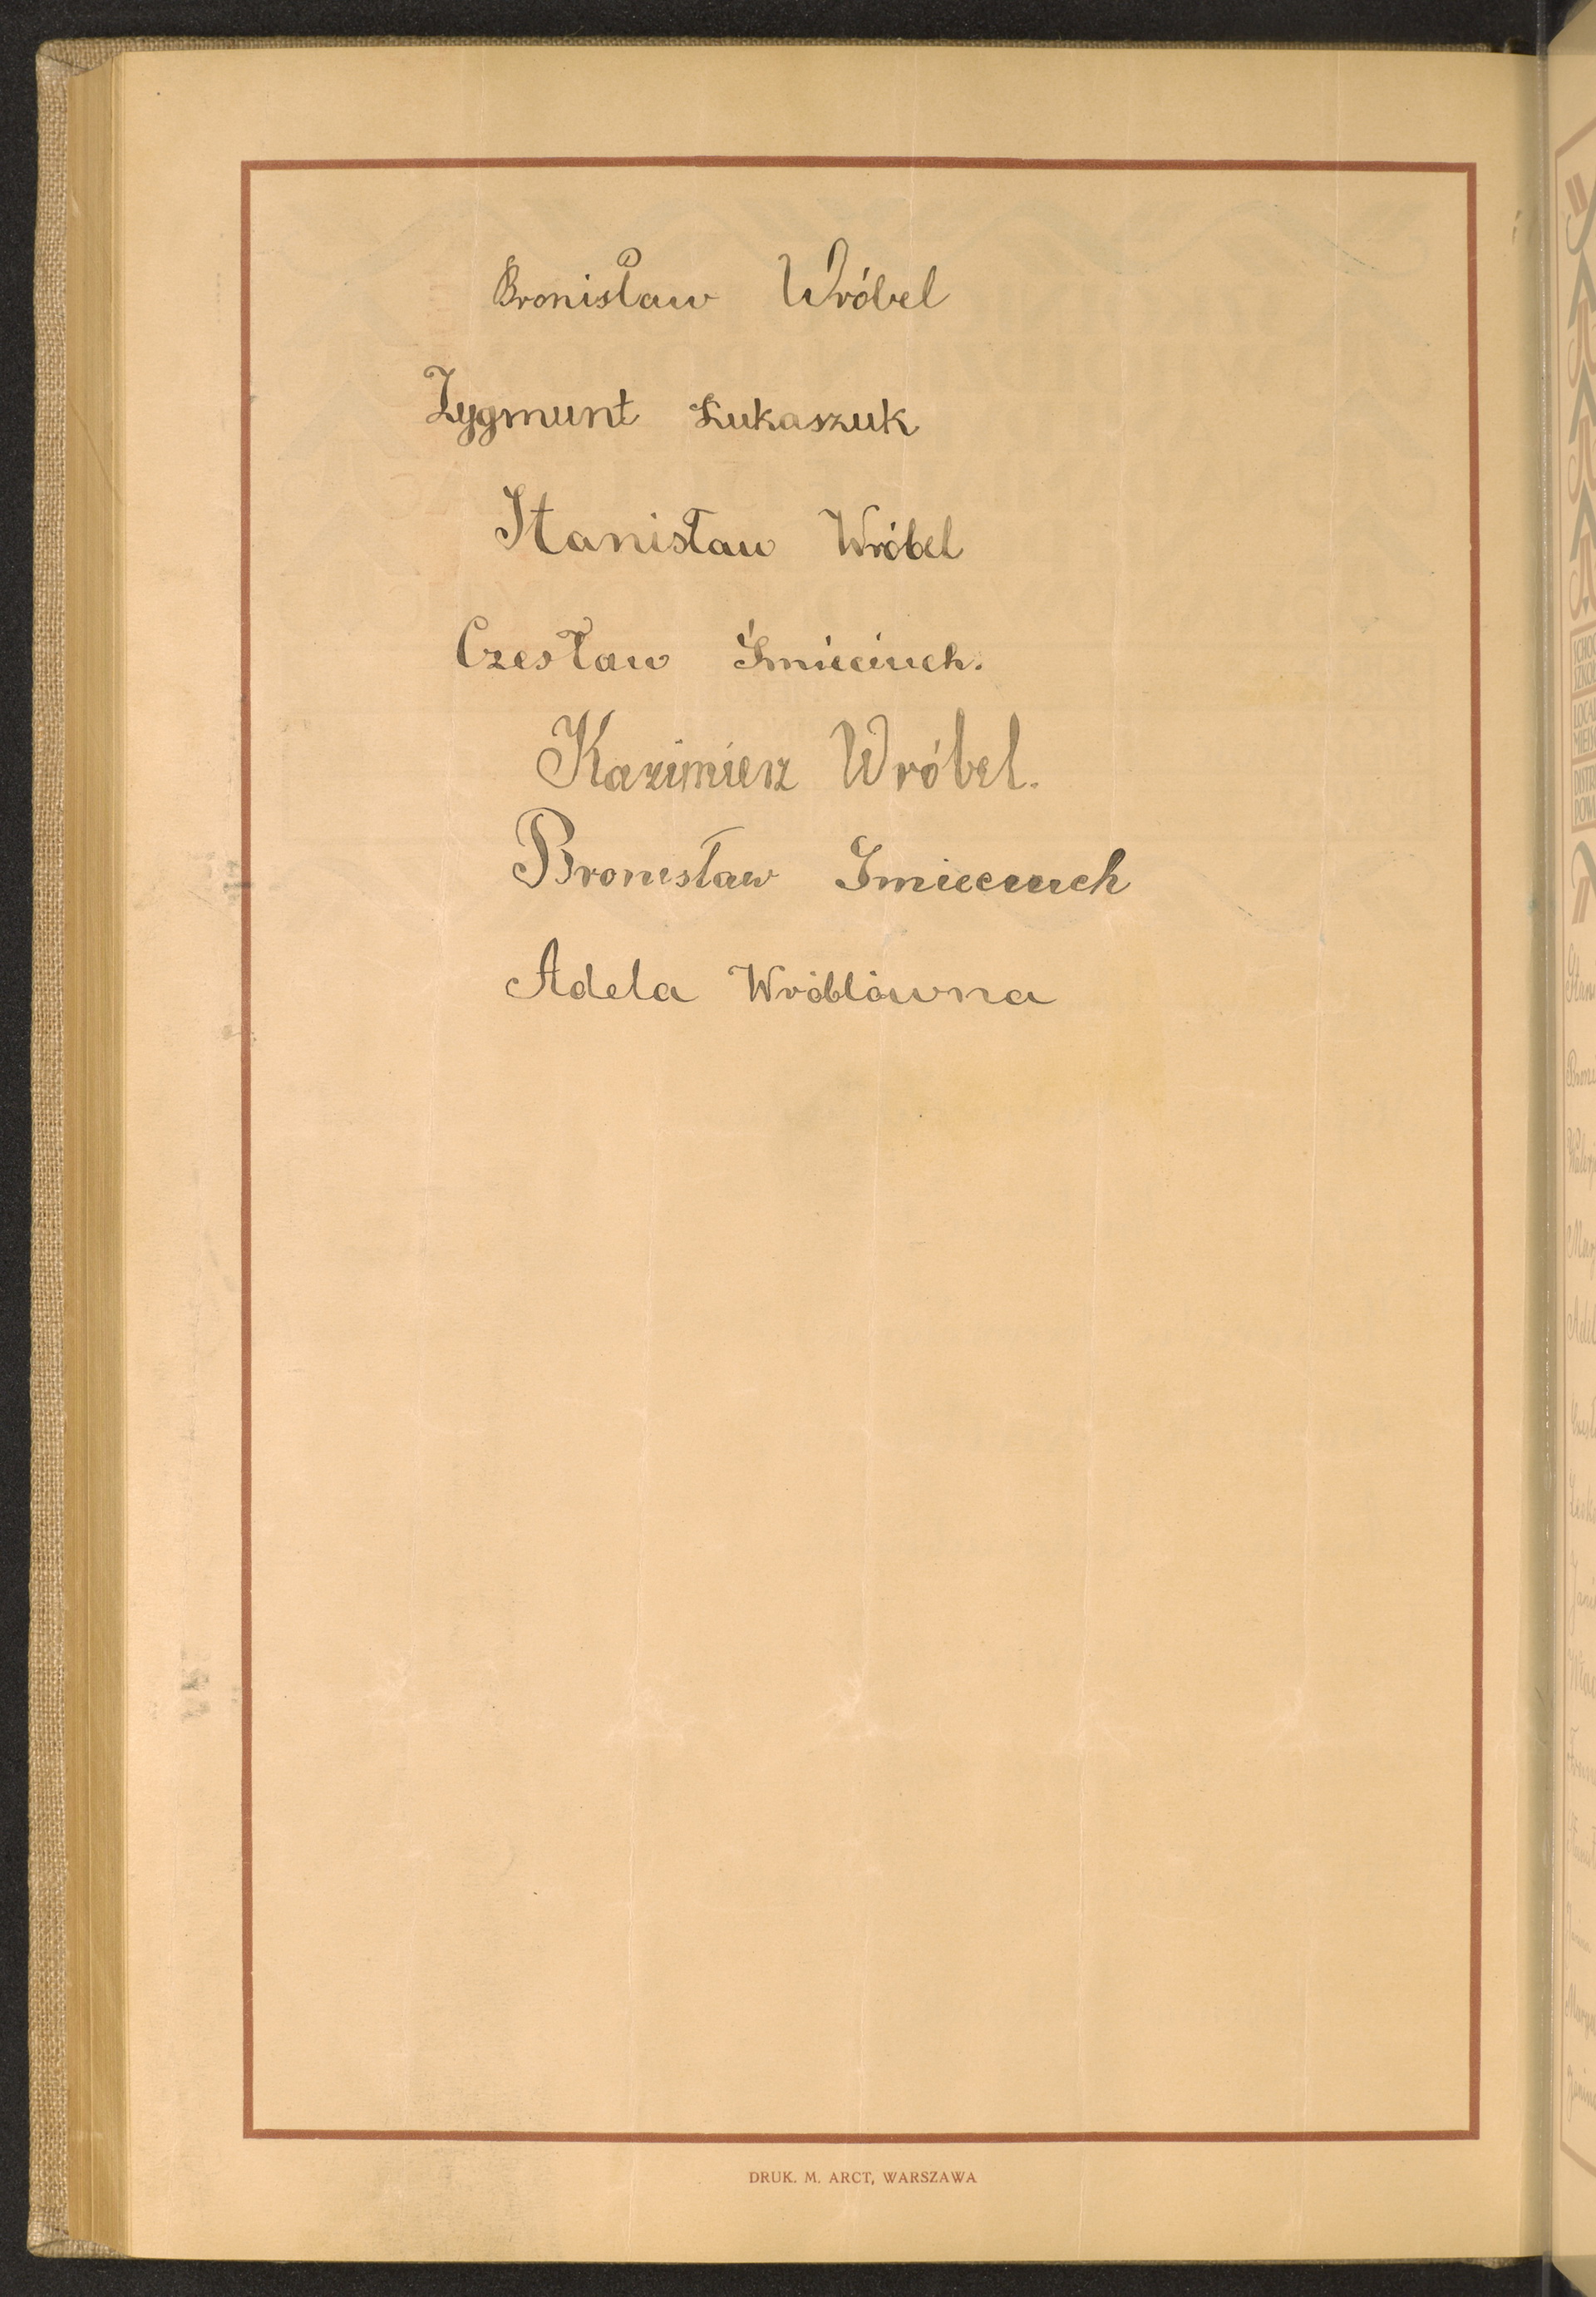 Bronisław Wróbel
Zygmunt Łukaszuk
Stanisław Wróbel
Czesław Śmieciuch.
Kazimierz Wróbel.
Bronisław Smieciuch
Adela Wróblówna
DRUK. M. ARCT, WARSZAWA